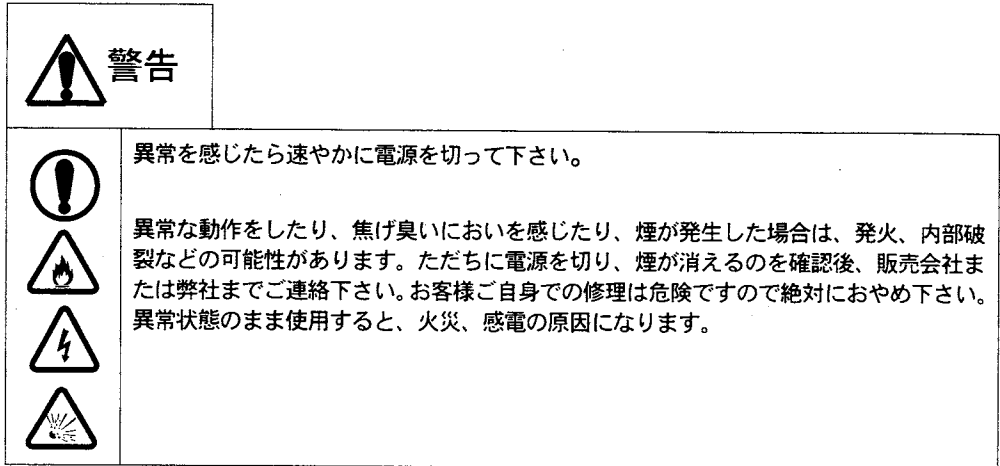 警告
異常を感じたら速やかに電源を切って下さい。
異常な動作をしたり、焦げ臭いにおいを感じたり、煙が発生した場合は、発火、内部破
裂などの可能性があります。ただちに電源を切り、煙が消えるのを確認後、販売会社ま
たは弊社までご連絡下さい。お客様ご自身での修理は危険ですので絶対におやめ下さい。
異常状態のまま使用すると、火災、感電の原因になります。